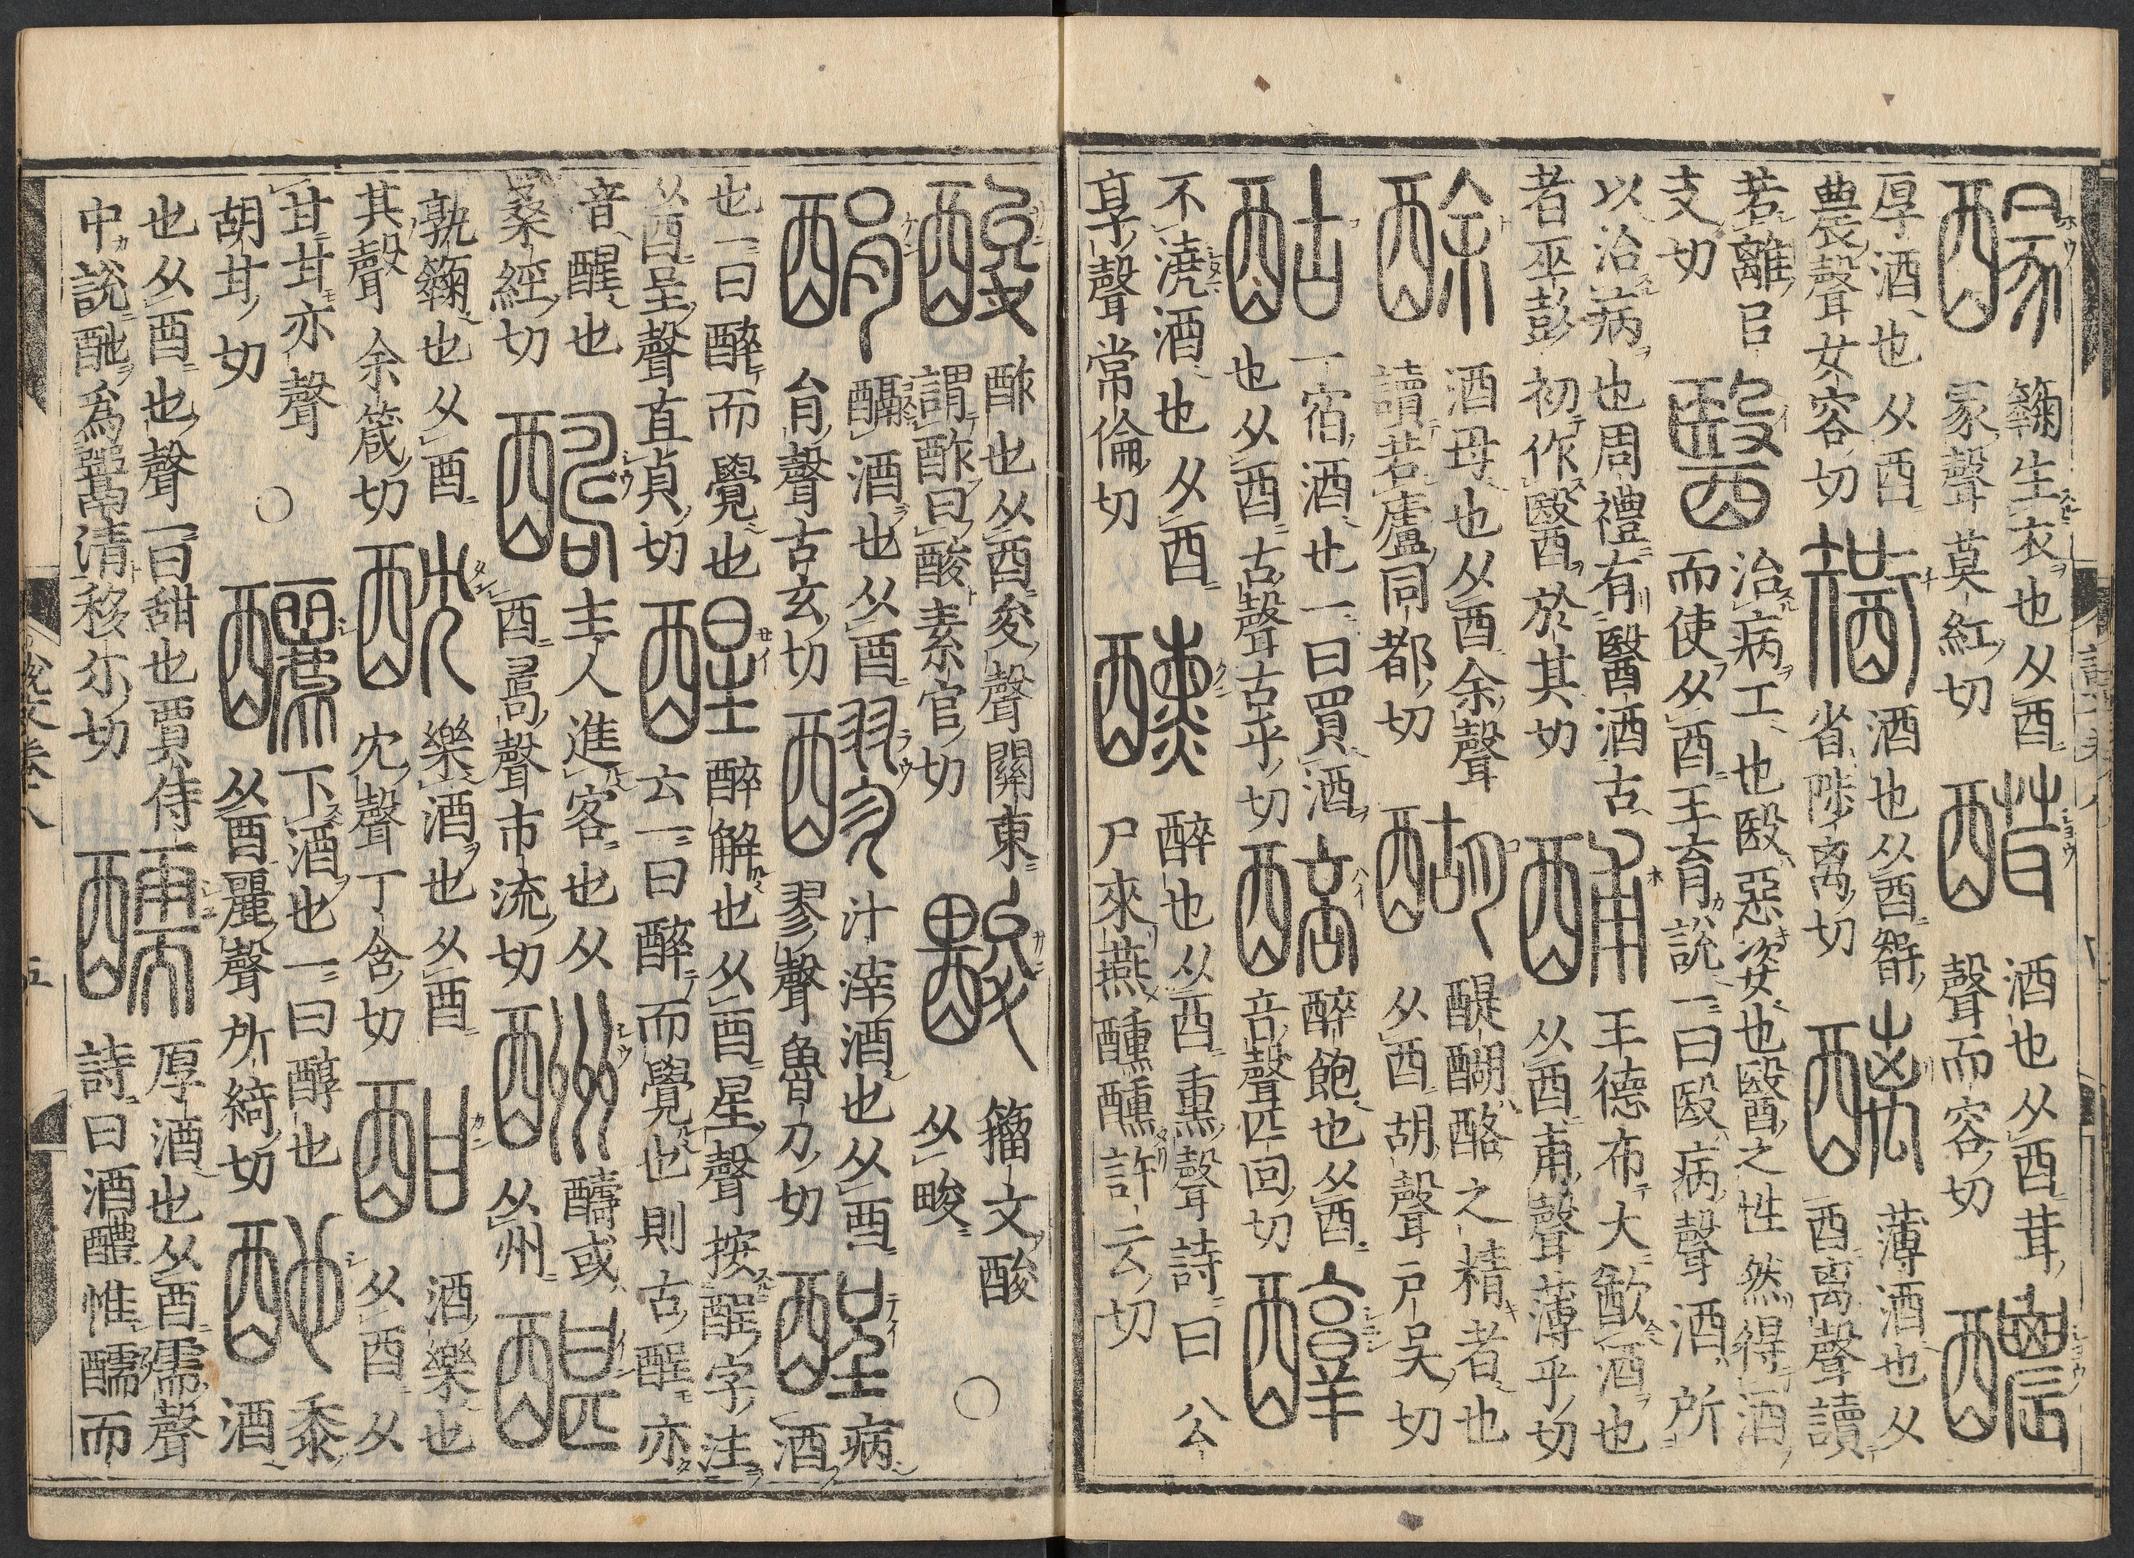 鞠生衣也从酉
冡聲莫紅切
酒也从酉茸
聲而容切
醲
厚酒也从酉
農聲女容切
酒也从酉
省陟离切
醨
薄酒也从
酉离聲讀
若離呂
支切
醫
治病工也殹惡姿也醫之性然得酒
而使从酉王育說一曰殹病聲酒所
以治病也周禮有醫酒古
者巫彭初作醫於其切
酺
王德布大㱃酒也
从酉甫聲薄乎切
酴
酒母也从酉余聲
讀若廬同都切
醐
醍醐酪之精者也
从酉胡聲戶吳切
酤
一宿酒也一曰買酒
也从酉古聲古乎切
醅
醉飽也从酉
咅聲匹回切
醇
不澆酒也从酉
𦎫聲常倫切
醺
醉也从酉熏聲詩曰公
尸來燕醺醺許云切
酸
酢也从酉夋聲關東
謂酢曰酸素官切
籒文酸
从畯
○
釃酒也从酉
肙聲古玄切
醪
汁滓酒也从酉
翏聲魯刀切
酲
病
酒
也一曰醉而覺也
从酉呈聲直貞切
醒
醉解也从酉星聲按酲字注
云一曰醉而覺也則古酲亦
音醒也
桑經切
醻
主人進客也从
酉𠷎聲市流切
酬
醻或
从州
孰籟也从酉
其聲余箴切
酖
樂酒也从酉
冘聲丁含切
酣
酒樂也
从酉从
甘甘亦聲
胡甘切
○
釃
下酒也一曰醇也
从酉麗聲所綺切
酏
黍
酒
也从酉也聲一曰甜也賈侍
中說酏為鬻清移尒切
醹
厚酒也从酉需聲
詩曰酒醴惟醹而
說文卷八
五